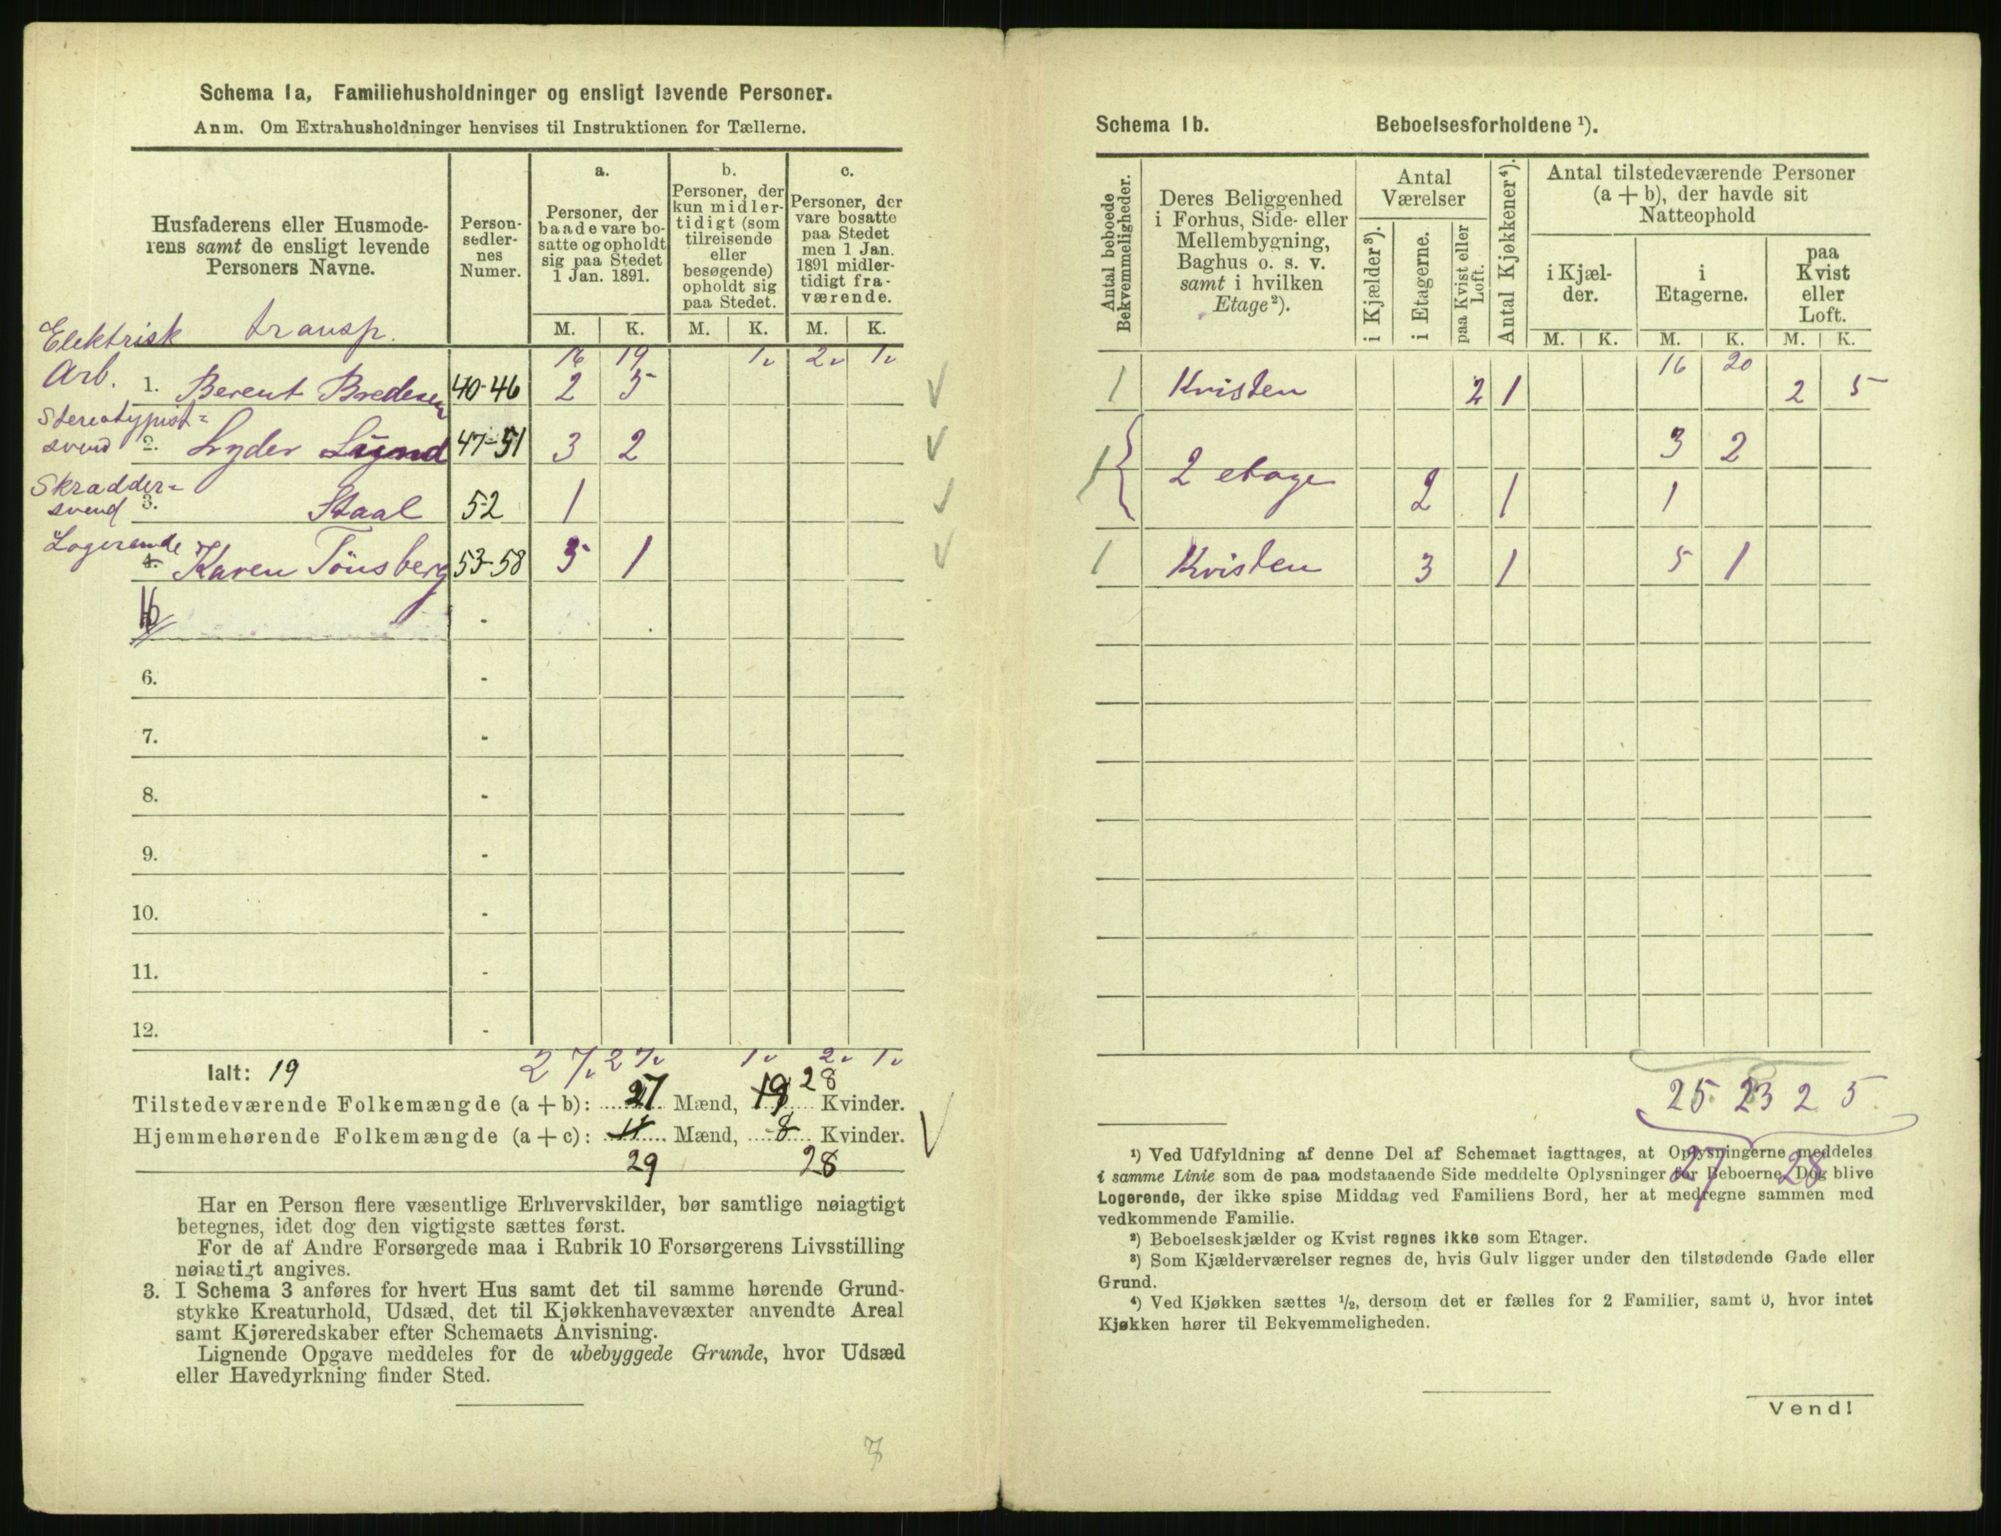 Schema 1a, Familiehusholdninger og ensligt levende Personer.
Anm. Om Extrahusholdninger henvises til Instruktionen for Tællerne.
Husfaderens eller Husmode-
rens samt de ensligt levende
Personers Navne.
Person-
sedler-
nes
Numer.
a.
Personer, der
baade vare bo-
satte og opholdt
sig paa Stedet
1 Jan. 1891.
b.
Personer, der
kun midler-
tidigt (som
tilreisende
eller
besøgende)
opholdt sig
paa Stedet.
c.
Personer, der
vare bosatte
paa Stedet
men 1 Jan.
1891 midler-
tidigt fra-
værende.
M. K. M. K. M. K.
Elektrisk transp. 16 19 1 2 1
Arb. 1. Berent Bredesen 40-46 2 5
Stereotypist-
svend 2. Lyder Lund 47-51 3 2
Skrædder-
svend 3. Staal 52 1
Logerende
4. Karen Tönsberg 53-58 5 1
-
6. -
7. -
8. -
9. -
10. -
11. -
12. -
Ialt: 19 27 27 1 2 1
28
Tilstedeværende Folkemængde (a + b): 27 Mænd, 19 Kvinder.
Hjemmehørende Folkemængde (a + c): 11 Mænd, 8 Kvinder.
29 28
Har en Person flere væsentlige Erhvervskilder, bør samtlige nøiagtigt
betegnes, idet dog den vigtigste sættes først.
For de af Andre Forsørgede maa i Rubrik 10 Forsørgerens Livsstilling
nøiagtigt angives.
3. I Schema 3 anføres for hvert Hus samt det til samme hørende Grund-
stykke Kreaturhold, Udsæd, det til Kjøkkenhavevæxter anvendte Areal
samt Kjøreredskaber efter Schemaets Anvisning.
Lignende Opgave meddeles for de ubebyggede Grunde, hvor Udsæd
eller Havedyrkning finder Sted.
Schema 1b. Beboelsesforholdene ¹).
Antal beboede
Bekvemmeligheder.
Deres Beliggenhed
i Forhus, Side- eller
Mellembygning,
Baghus o. s. v.
samt i hvilken
Etage²).
Antal
Værelser
i Kjælder³).
i Etagerne.
paa Kvist eller
Loft.
Antal Kjøkkener⁴).
Antal tilstedeværende Personer
(a + b), der havde sit
Natteophold
i Kjæl-
der.
i
Etagerne.
paa
Kvist
eller
Loft.
M. K. M. K. M. K.
16 20
1 Kvisten 2 1 2 5
3 2
1 2 etage 2 1 1
1 Kvisten 3 1 5 1
25 23 2 5
27 28
¹) Ved Udfyldning af denne Del af Schemaet iagttages, at Oplysningerne meddeles
i samme Linie som de paa modstaaende Side meddelte Oplysninger for Beboerne. Dog blive
Logerende, der ikke spise Middag ved Familiens Bord, her at medregne sammen med
vedkommende Familie.
²) Beboelseskjælder og Kvist regnes ikke som Etager.
³) Som Kjælderværelser regnes de, hvis Gulv ligger under den tilstødende Gade eller
Grund.
⁴) Ved Kjøkken sættes ½, dersom det er fælles for 2 Familier, samt 0, hvor intet
Kjøkken hører til Bekvemmeligheden.
Vend!